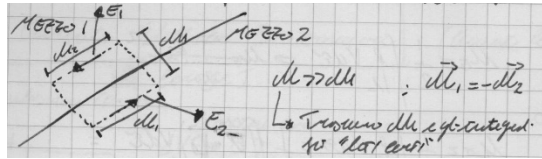 MEZZO 1
E₁
dh
MEZZO 2
dl₂
dl >> dh ; dl⃗₁ = -dl⃗₂
dl₁
E₂
↳ Trascuro dh e gli integrali
su "lati corti"